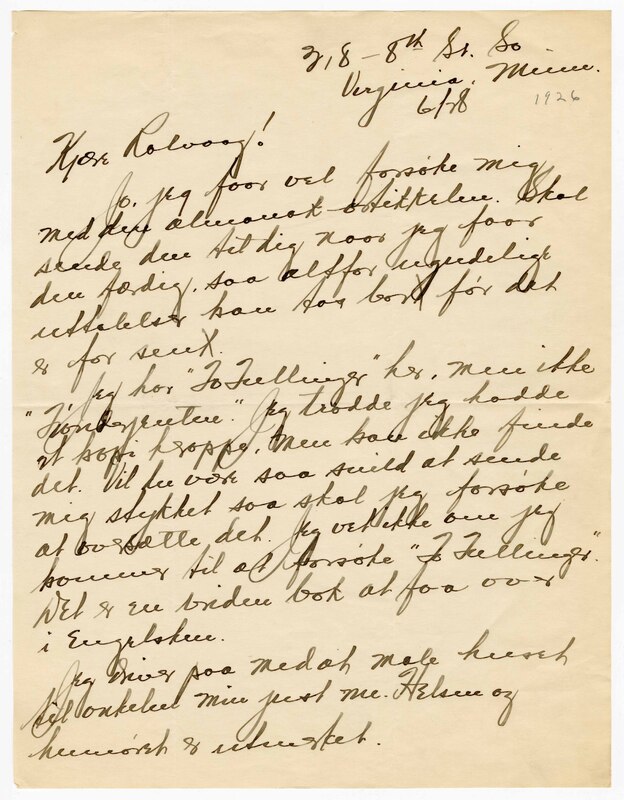 218 - 8th St. So
Virginia, Minn.
6/28 1926
Kjære Rolvaag!
Jo, jeg faar vel forsøke mig
med den almanak-artikkelen. Skal
sende den til dig naar jeg faar
den færdig, saa altfor ugudelige
uttalelser kan taa bort før det
er for sent.
Jeg har "To Tullinger" her, men ikke
"Fiønderjenten." Jeg trodde jeg hadde
et kopi heroppe, men kan ikke finde
det. Vil du være saa snild at sende
mig stykket saa skal jeg forsøke
at oversætte det. Jeg vet ikke om jeg
kommer til at forsøke "To Tullinger".
Det er en vriden bok at faa over
i Engelsken.
Jeg driver paa med at male huset
til onkelen min just nu. Helsen og
humøret er utmerket.